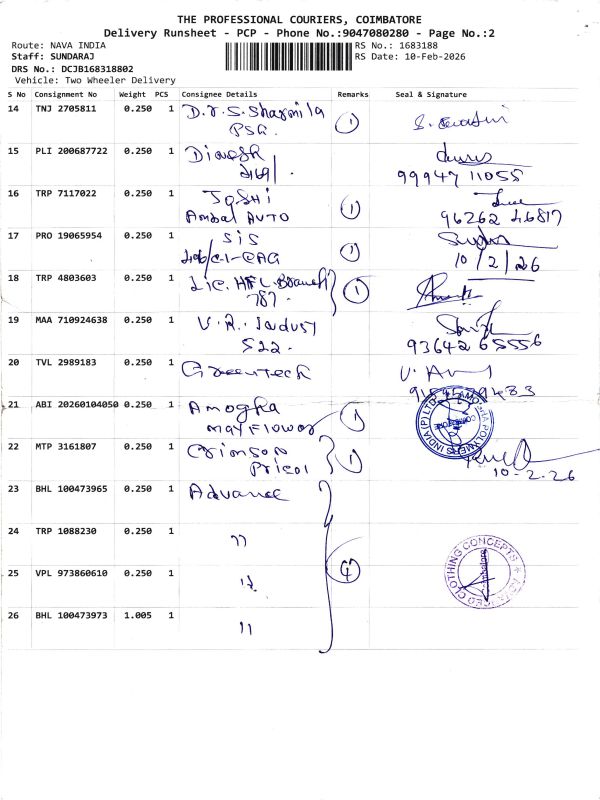 THE PROFESSIONAL COURIERS, COIMBATORE
Delivery Runsheet - PCP - Phone No.:9047080280 - Page No.:2
Route: NAVA INDIA
RS No.: 1683188
Staff: SUNDARAJ
RS Date: 10-Feb-2026
DRS No.: DCJB168318802
Vehicle: Two Wheeler Delivery
S No Consignment No Weight PCS Consignee Details Remarks Seal & Signature
14 TNJ 2705811 0.250 1 D.r.S.Sharmila
PSG. 1
15 PLI 200687722 0.250 1 Dinesh
99947 11055
16 TRP 7117022 0.250 1 Joshi
Ambal AUTO 1 96262 46817
17 PRO 19065954 0.250 1 SiS
1 10/2/26
18 TRP 4803603 0.250 1 Lic. HFL. Branch
787. 1
19 MAA 710924638 0.250 1 V.R.
522. 93642 65556
20 TVL 2989183 0.250 1 Greentech
21 ABI 20260104050 0.250 1 Amogha
mayFlower 1
22 MTP 3161807 0.250 1 Crimson
Pricol 1 10-2-26
23 BHL 100473965 0.250 1 Advance
24 TRP 1088230 0.250 1 "
25 VPL 973860610 0.250 1 " 4
26 BHL 100473973 1.005 1 "